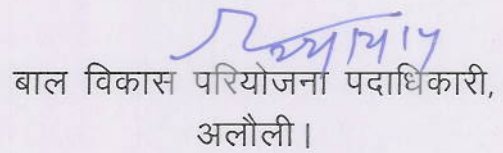 बाल विकास परियोजना पदाधिकारी,
अलौली।